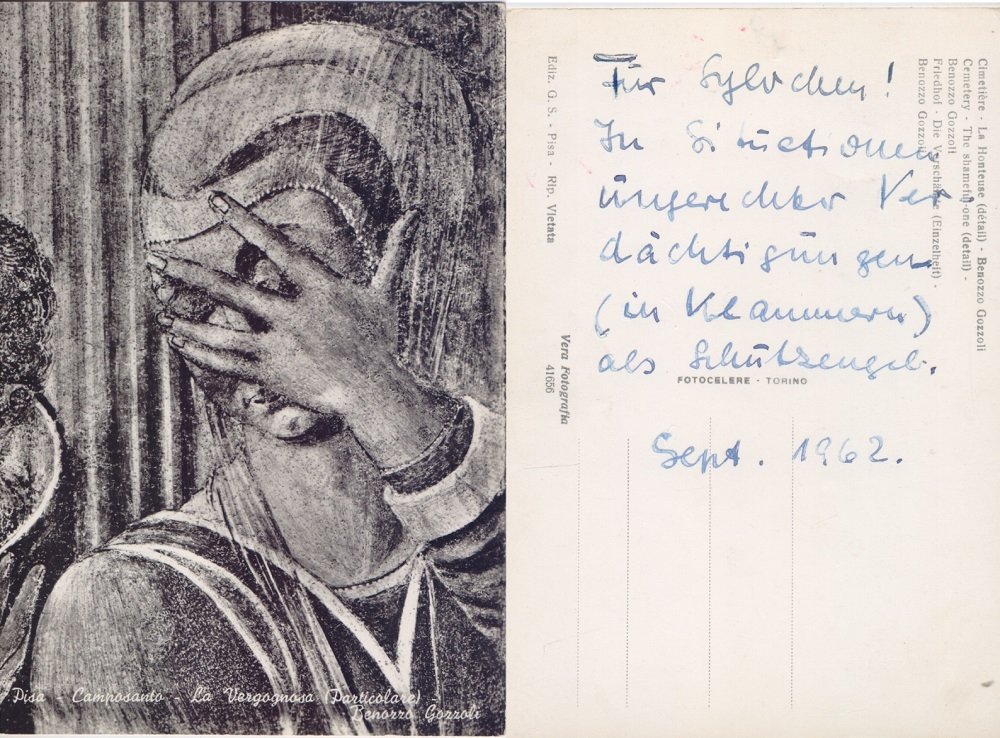 Pisa - Camposanto - La Vergognosa (Particolare) -
Benozzo Gozzoli
Ediz. G. S. - Pisa - Rip. Vietata
Vera Fotografia
41656
Für Sylvchen!
In Situationen
ungerechter Ver
dächtigungen
(in Klammern)
als Schutzengel.
FOTOCELERE - TORINO
Sept. 1962.
Cimetière - La Honteuse (détail) - Benozzo Gozzoli
Cemetery - The shameful-one (detail) -
Benozzo Gozzoli
Friedhof - Die (Einzelheft) -
Benozzo Gozzoli